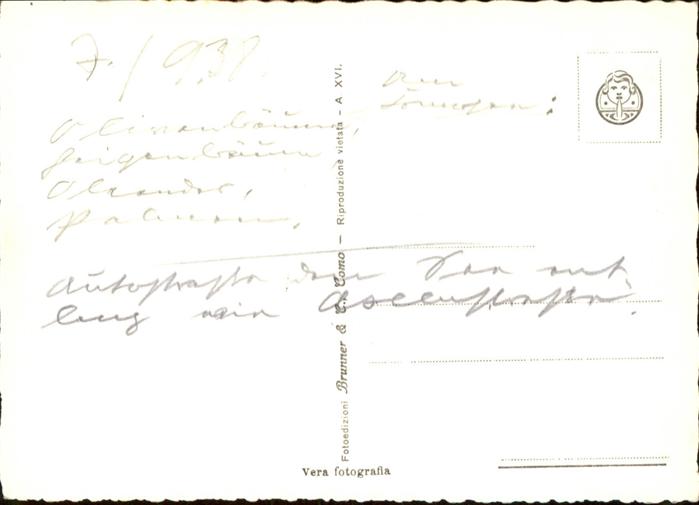 7./938.
Am
Olivenbäume,
Feigenbäume,
Oleander,
Palmen.
Autostraße dem See ent
lang wie
Fotoedizioni Brunner & C. Como - Riproduzione vietata - A XVI.
Vera fotografia